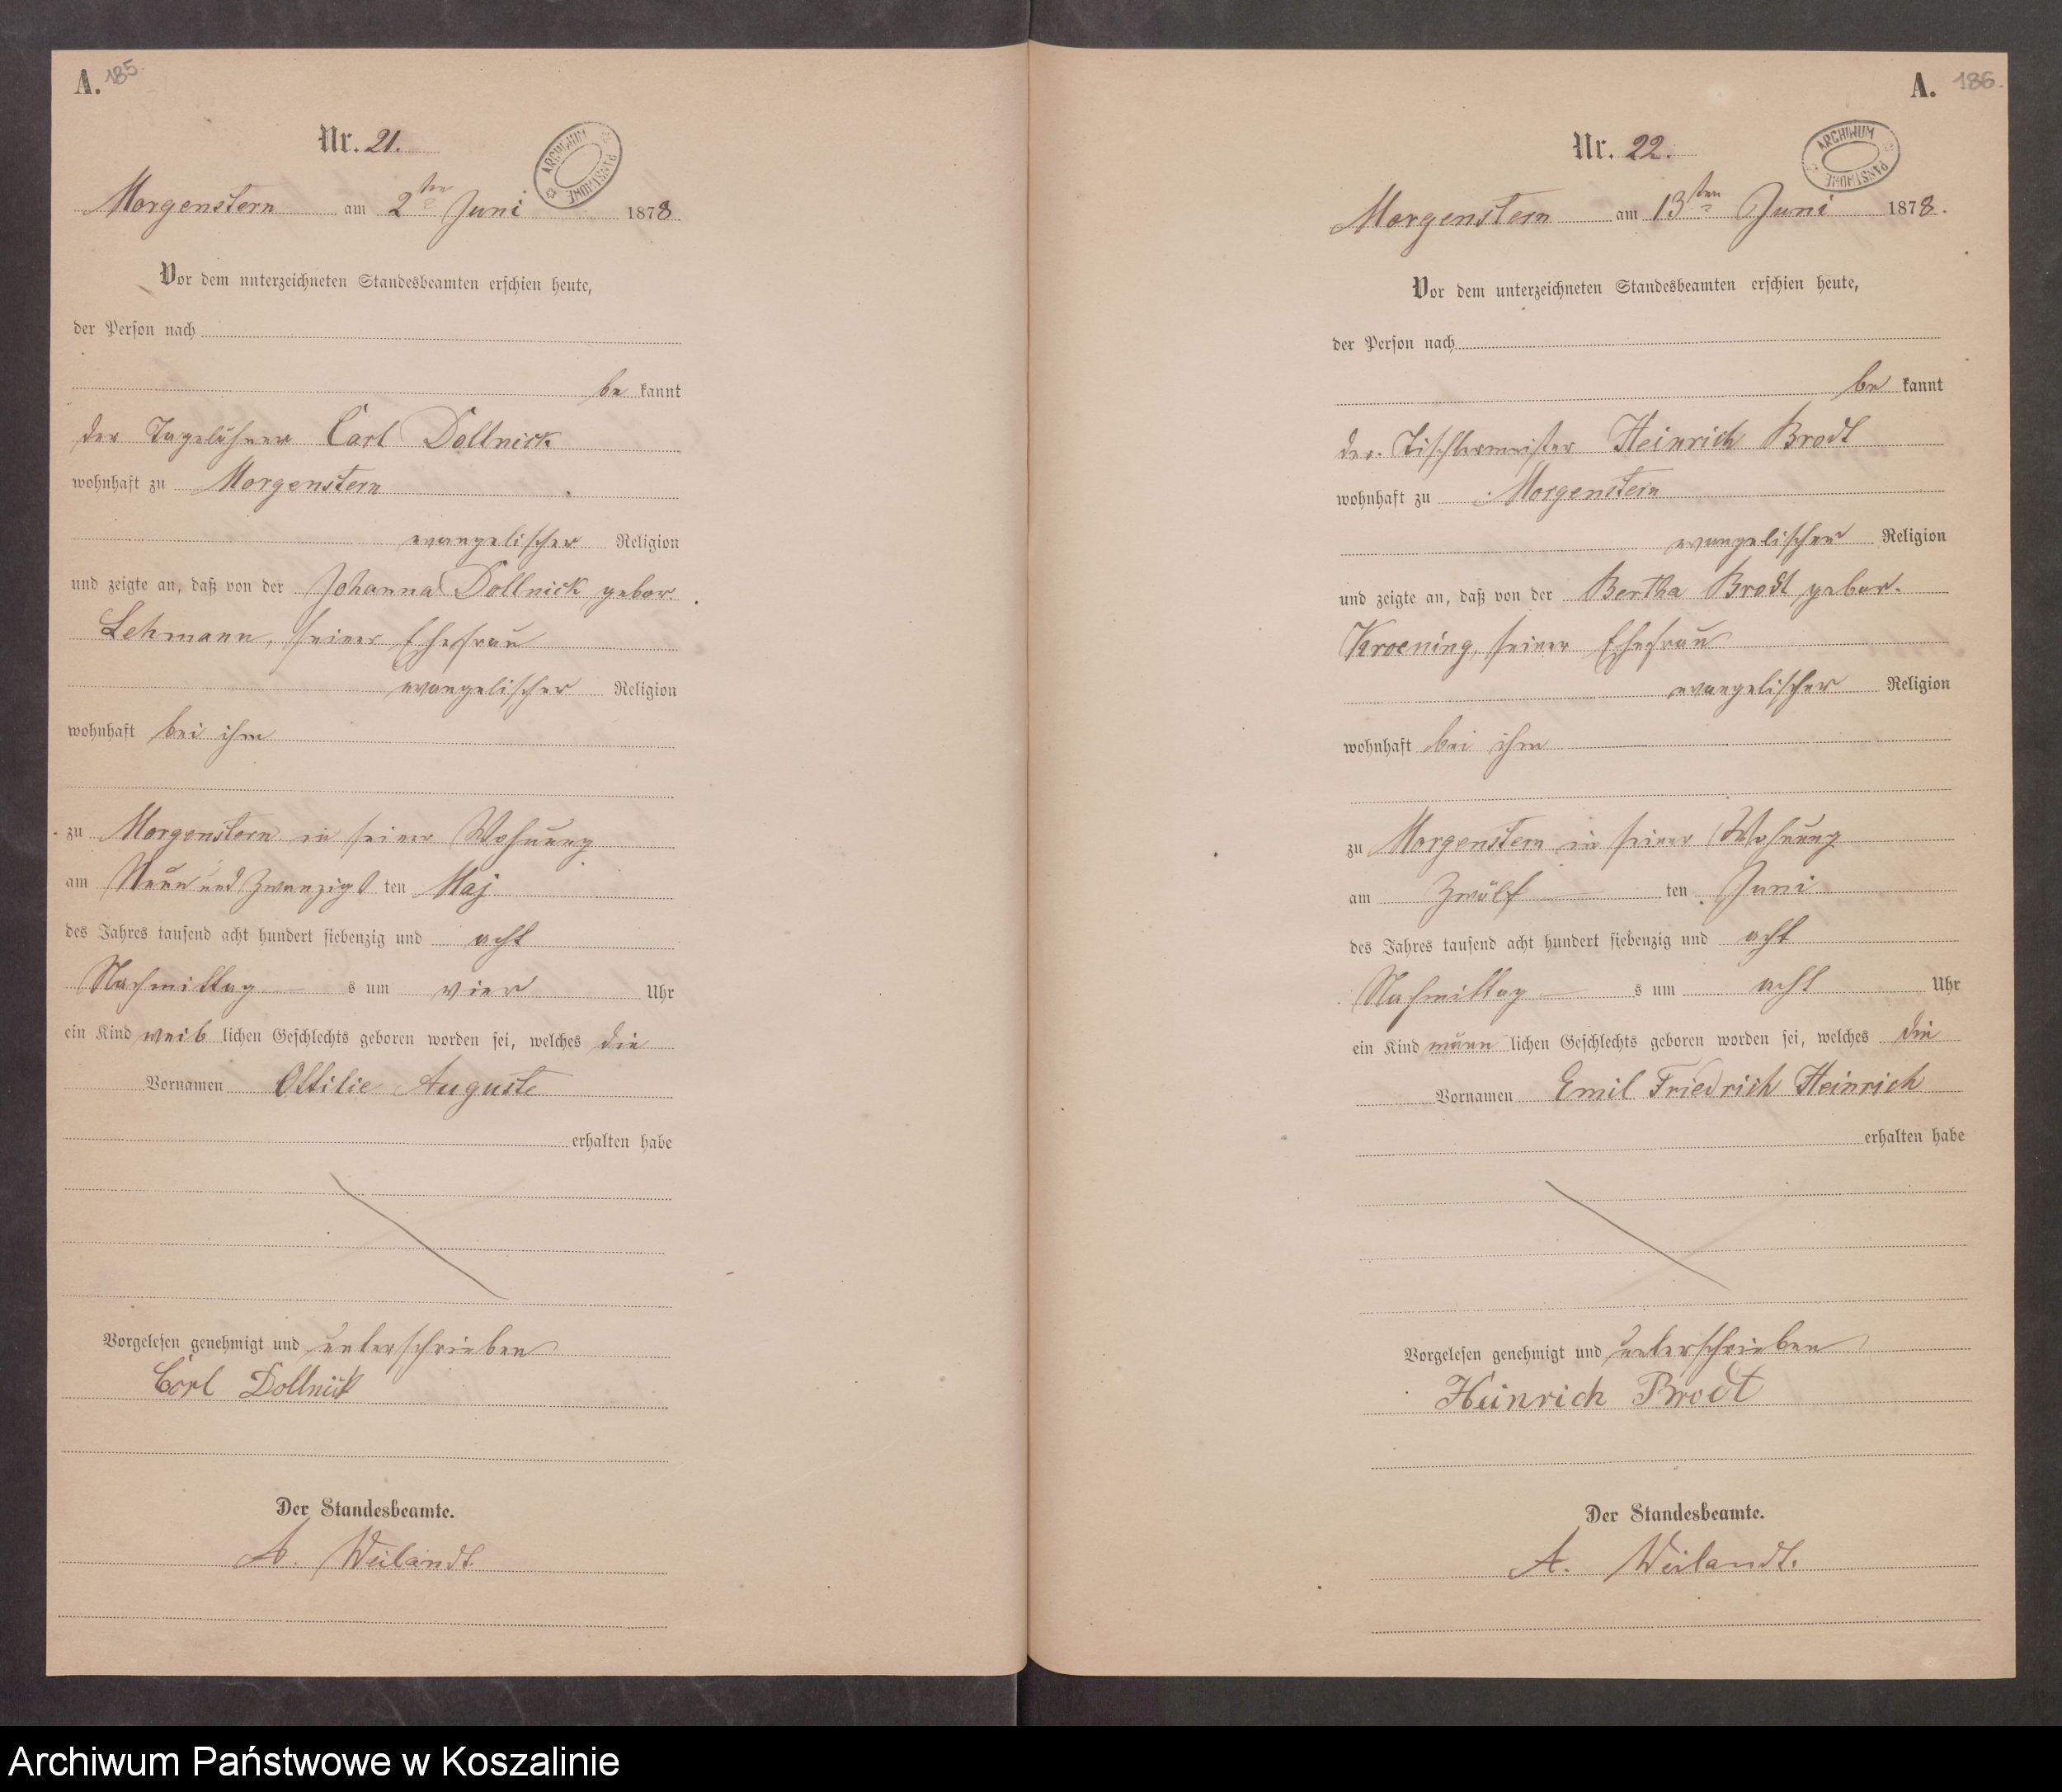 A. 185.
Nr. 21.
ARCHIWUM PAŃSTWOWE
Morgenstern am 2ten Juni 1878
Vor dem unterzeichneten Standesbeamten erschien heute,
der Person nach
be kannt
der Tagelöhner Carl Dollnick
wohnhaft zu Morgenstern
evangelischer Religion
und zeigte an, daß von der Johanna Dollnick gebor.
Lehmann, seiner Ehefrau
evangelischer Religion
wohnhaft bei ihm
zu Morgenstern in seiner Wohnung
am Neun und Zwanzigs ten Maj
des Jahres tausend acht hundert siebenzig und acht
Nachmittag s um vier Uhr
ein Kind weib lichen Geschlechts geboren worden sei, welches die
Vornamen Ottilie Auguste
erhalten habe
Vorgelesen genehmigt und unterschrieben
Carl Dollnick
Der Standesbeamte.
A. Weilandt.
A. 186.
Nr. 22.
ARCHIWUM PAŃSTWOWE
Morgenstern am 13ten Juni 1878.
Vor dem unterzeichneten Standesbeamten erschien heute,
der Person nach
be kannt
der Tischlermeister Heinrich Brodt
wohnhaft zu Morgenstern
evangelischer Religion
und zeigte an, daß von der Bertha Brodt gebor.
Kroening, seiner Ehefrau
evangelischer Religion
wohnhaft bei ihm
zu Morgenstern in seiner Wohnung
am Zwölf ten Juni
des Jahres tausend acht hundert siebenzig und acht
Nachmittag s um acht Uhr
ein Kind männ lichen Geschlechts geboren worden sei, welches die
Vornamen Emil Friedrich Heinrich
erhalten habe
Vorgelesen genehmigt und unterschrieben
Heinrich Brodt
Der Standesbeamte.
A. Weilandt.
Archiwum Państwowe w Koszalinie